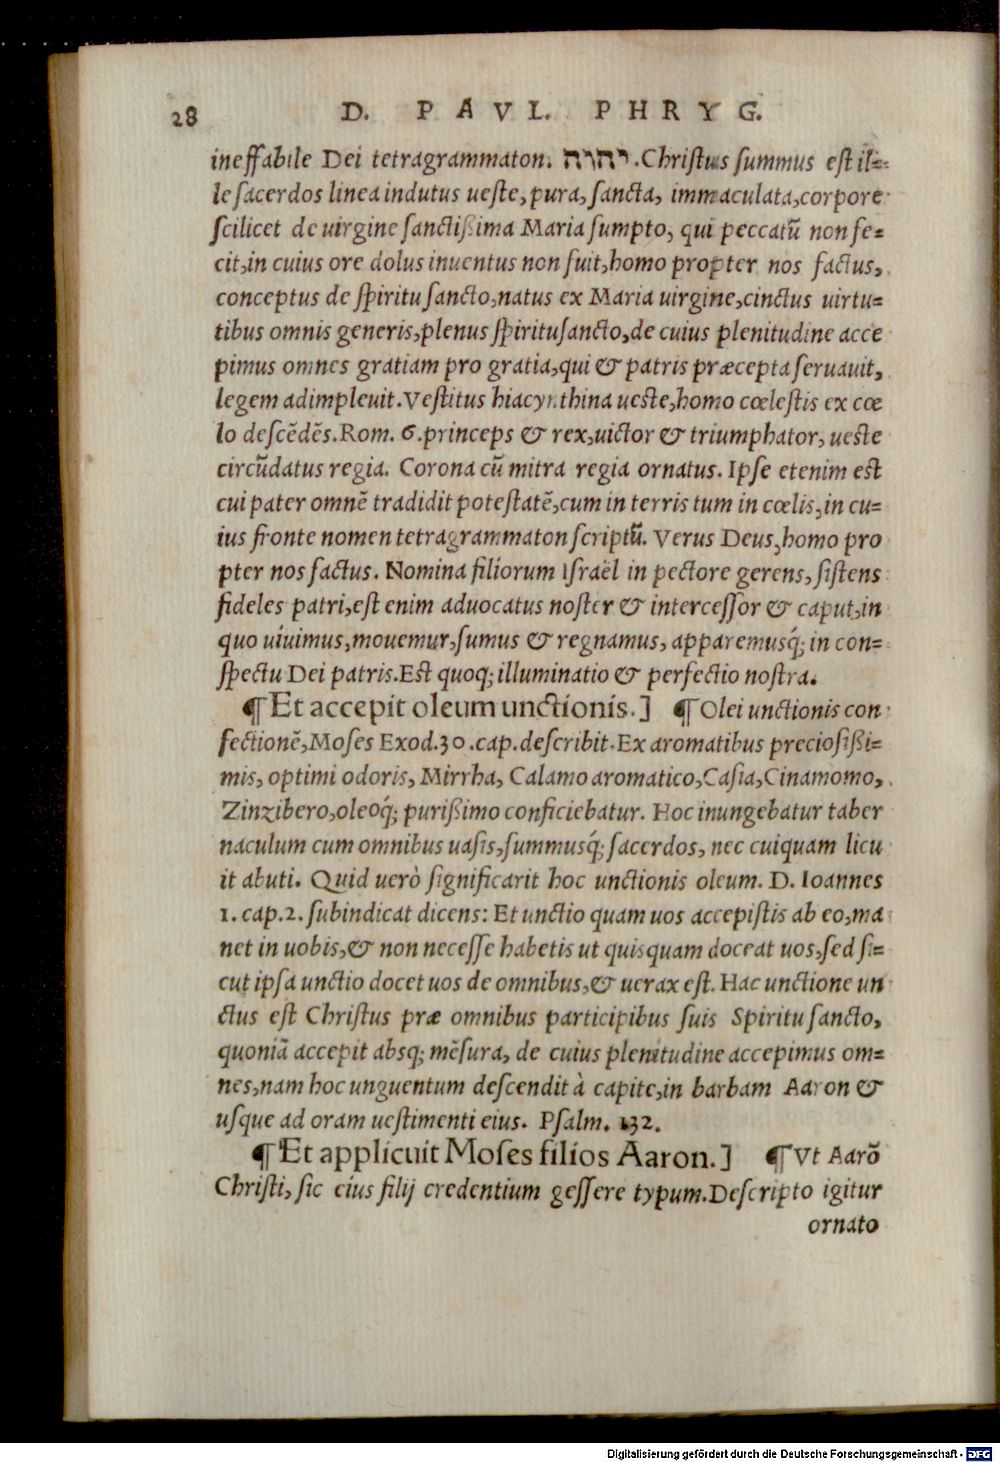 28 D. PAVL. PHRYG.
ineffabile Dei tetragrammaton. יהוה. Christus summus est il=
le sacerdos linea indutus ueste, pura, sancta, immaculata, corpore
scilicet de uirgine sanctißima Maria sumpto, qui peccatū non fe=
cit, in cuius ore dolus inuentus non fuit, homo propter nos factus,
conceptus de spiritu sancto, natus ex Maria uirgine, cinctus uirtu=
tibus omnis generis, plenus spiritusancto, de cuius plenitudine acce
pimus omnes gratiam pro gratia, qui & patris præcepta seruauit,
legem adimpleuit. Vestitus hiacynthina ueste, homo cœlestis ex cœ
lo descēdēs. Rom. 6. princeps & rex, uictor & triumphator, ueste
circūdatus regia. Corona cū mitra regia ornatus. Ipse etenim est
cui pater omnē tradidit potestatē, cum in terris tum in cœlis, in cu=
ius fronte nomen tetragrammaton scriptū. Verus Deus, homo pro
pter nos factus. Nomina filiorum Israël in pectore gerens, sistens
fideles patri, est enim aduocatus noster & intercessor & caput, in
quo uiuimus, mouemur, sumus & regnamus, apparemusq́; in con=
spectu Dei patris. Est quoq; illuminatio & perfectio nostra.
¶ Et accepit oleum unctionis.] ¶ Olei unctionis con
fectionē, Moses Exod. 30. cap. describit. Ex aromatibus preciosißi=
mis, optimi odoris, Mirrha, Calamo aromatico, Casia, Cinamomo,
Zinzibero, oleoq́; purißimo conficiebatur. Hoc inungebatur taber
naculum cum omnibus uasis, summusq́; sacerdos, nec cuiquam licu
it abuti. Quid uerò significarit hoc unctionis oleum. D. Ioannes
1. cap. 2. subindicat dicens: Et unctio quam uos accepistis ab eo, ma
net in uobis, & non necesse habetis ut quisquam doceat uos, sed si=
cut ipsa unctio docet uos de omnibus, & uerax est. Hac unctione un
ctus est Christus præ omnibus participibus suis Spiritu sancto,
quoniā accepit absq; mēsura, de cuius plenitudine accepimus om=
nes, nam hoc unguentum descendit à capite, in barbam Aaron &
usque ad oram uestimenti eius. Psalm. 132.
¶ Et applicuit Moses filios Aaron.] ¶ Vt Aarō
Christi, sic eius filij credentium gessere typum. Descripto igitur
ornato
Digitalisierung gefördert durch die Deutsche Forschungsgemeinschaft - DFG